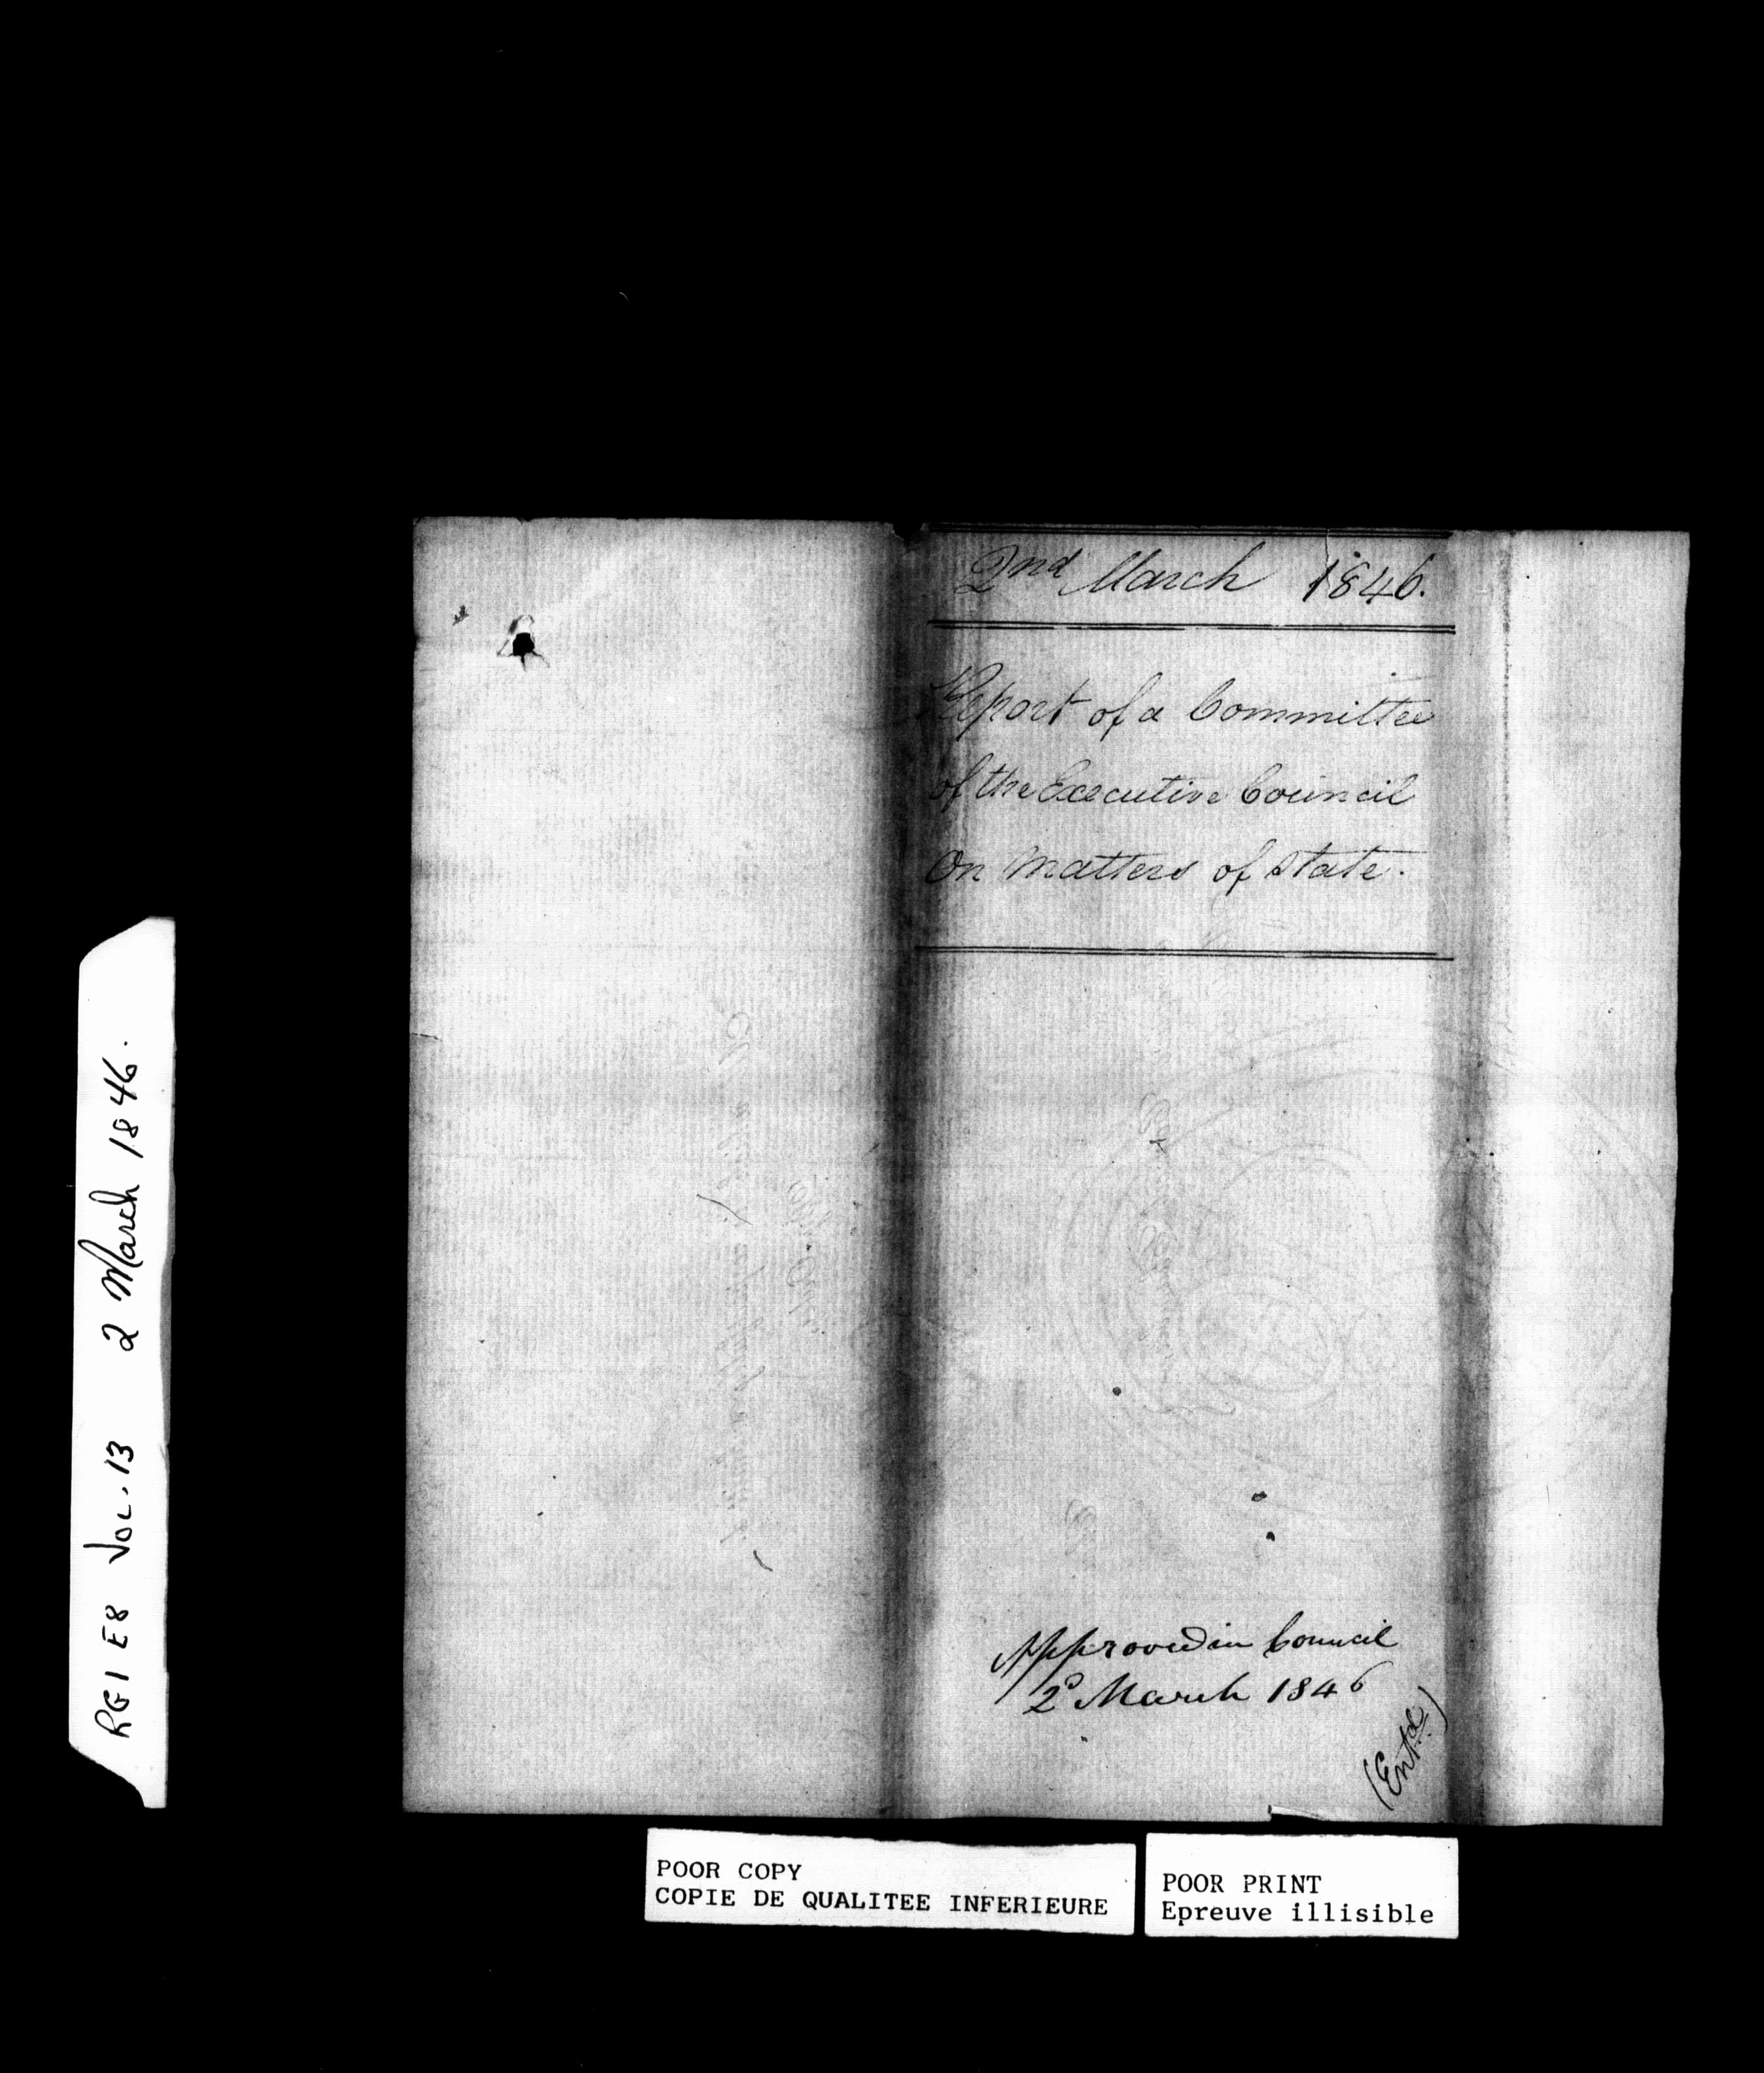 2nd March 1846.
Report of a Committee
of the Executive Council
On Matters of State.
Approved in Council
2d March 1846
(Entd.)
RG1 E8 VOL. 13 2 March 1846.
POOR COPY
COPIE DE QUALITEE INFERIEURE
POOR PRINT
Epreuve illisible